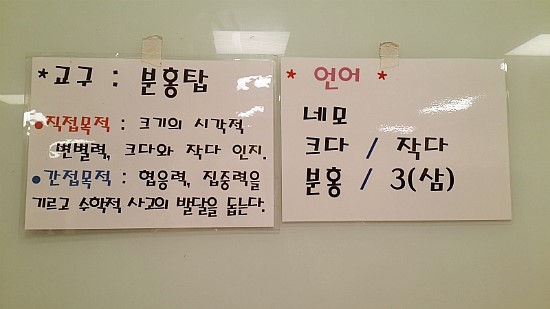 *교구 : 분홍탑
●직접목적 : 크기의 시각적
변별력, 크다와 작다 인지.
●간접목적 : 협응력, 집중력을
기르고 수학적 사고의 발달을 돕는다.
* 언어 *
네모
크다 / 작다
분홍 / 3(삼)